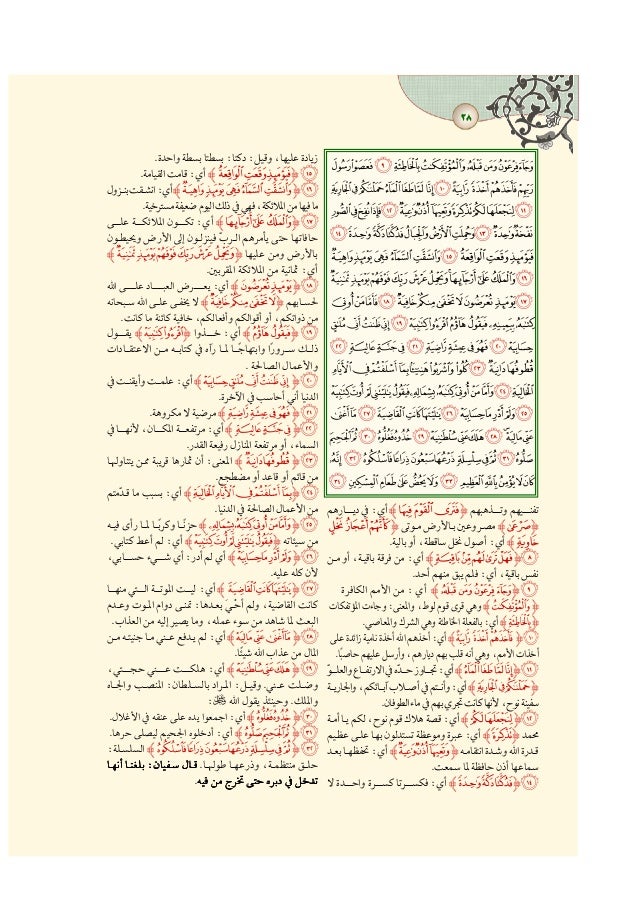 ٢٨
وَجَآءَ فِرْعَوْنُ وَمَن قَبْلَهُۥ وَٱلْمُؤْتَفِكَٰتُ بِٱلْخَاطِئَةِ ۝٩ فَعَصَوْا۟ رَسُولَ
رَبِّهِمْ فَأَخَذَهُمْ أَخْذَةً رَّابِيَةً ۝١٠ إِنَّا لَمَّا طَغَا ٱلْمَآءُ حَمَلْنَٰكُمْ فِى ٱلْجَارِيَةِ
۝١١ لِنَجْعَلَهَا لَكُمْ تَذْكِرَةً وَتَعِيَهَآ أُذُنٌ وَٰعِيَةٌ ۝١٢ فَإِذَا نُفِخَ فِى ٱلصُّورِ
نَفْخَةٌ وَٰحِدَةٌ ۝١٣ وَحُمِلَتِ ٱلْأَرْضُ وَٱلْجِبَالُ فَدُكَّتَا دَكَّةً وَٰحِدَةً ۝١٤
فَيَوْمَئِذٍ وَقَعَتِ ٱلْوَاقِعَةُ ۝١٥ وَٱنشَقَّتِ ٱلسَّمَآءُ فَهِىَ يَوْمَئِذٍ وَاهِيَةٌ
۝١٦ وَٱلْمَلَكُ عَلَىٰٓ أَرْجَآئِهَا وَيَحْمِلُ عَرْشَ رَبِّكَ فَوْقَهُمْ يَوْمَئِذٍ ثَمَٰنِيَةٌ
۝١٧ يَوْمَئِذٍ تُعْرَضُونَ لَا تَخْفَىٰ مِنكُمْ خَافِيَةٌ ۝١٨ فَأَمَّا مَنْ أُوتِىَ
كِتَٰبَهُۥ بِيَمِينِهِۦ فَيَقُولُ هَآؤُمُ ٱقْرَءُوا۟ كِتَٰبِيَهْ ۝١٩ إِنِّى ظَنَنتُ أَنِّى مُلَٰقٍ
حِسَابِيَهْ ۝٢٠ فَهُوَ فِى عِيشَةٍ رَّاضِيَةٍ ۝٢١ فِى جَنَّةٍ عَالِيَةٍ ۝٢٢
قُطُوفُهَا دَانِيَةٌ ۝٢٣ كُلُوا۟ وَٱشْرَبُوا۟ هَنِيٓـًٔۢا بِمَآ أَسْلَفْتُمْ فِى ٱلْأَيَّامِ
ٱلْخَالِيَةِ ۝٢٤ وَأَمَّا مَنْ أُوتِىَ كِتَٰبَهُۥ بِشِمَالِهِۦ فَيَقُولُ يَٰلَيْتَنِى لَمْ أُوتَ كِتَٰبِيَهْ
۝٢٥ وَلَمْ أَدْرِ مَا حِسَابِيَهْ ۝٢٦ يَٰلَيْتَهَا كَانَتِ ٱلْقَاضِيَةَ ۝٢٧ مَآ أَغْنَىٰ
عَنِّى مَالِيَهْ ۝٢٨ هَلَكَ عَنِّى سُلْطَٰنِيَهْ ۝٢٩ خُذُوهُ فَغُلُّوهُ ۝٣٠ ثُمَّ ٱلْجَحِيمَ
صَلُّوهُ ۝٣١ ثُمَّ فِى سِلْسِلَةٍ ذَرْعُهَا سَبْعُونَ ذِرَاعًا فَٱسْلُكُوهُ ۝٣٢ إِنَّهُۥ
كَانَ لَا يُؤْمِنُ بِٱللَّهِ ٱلْعَظِيمِ ۝٣٣ وَلَا يَحُضُّ عَلَىٰ طَعَامِ ٱلْمِسْكِينِ ۝٣٤
تفنيهم وتذهبهم ﴿فَتَرَى ٱلْقَوْمَ فِيهَا﴾ أي: في ديارهم
﴿صَرْعَىٰ﴾ مصروعين بالأرض موتى ﴿كَأَنَّهُمْ أَعْجَازُ نَخْلٍ
خَاوِيَةٍ﴾ أي: أصول نخل ساقطة، أو بالية.
۝٨ ﴿فَهَلْ تَرَىٰ لَهُم مِّنۢ بَاقِيَةٍ﴾ أي: من فرقة باقية، أو من
نفس باقية، أي: فلم يبق منهم أحد.
۝٩ ﴿وَجَآءَ فِرْعَوْنُ وَمَن قَبْلَهُۥ﴾ أي: من الأمم الكافرة
﴿وَٱلْمُؤْتَفِكَٰتُ﴾ وهي قرى قوم لوط، والمعنى: وجاءت المؤتفكات
﴿بِٱلْخَاطِئَةِ﴾ أي: بالفعلة الخاطئة وهي الشرك والمعاصي.
۝١٠ ﴿فَأَخَذَهُمْ أَخْذَةً رَّابِيَةً﴾ أي: أخذهم الله أخذة نامية زائدة على
أخذات الأمم، وهي أنه قلب بهم ديارهم، وأرسل عليهم حاصبًا.
۝١١ ﴿إِنَّا لَمَّا طَغَا ٱلْمَآءُ﴾ أي: تجاوز حدّه في الارتفاع والعلوّ
﴿حَمَلْنَٰكُمْ فِى ٱلْجَارِيَةِ﴾ أي: وأنتم في أصلاب آبائكم، والجارية:
سفينة نوح، لأنها كانت تجري بهم في ماء الطوفان.
۝١٢ ﴿لِنَجْعَلَهَا لَكُمْ﴾ أي: قصة هلاك قوم نوح، لكم يا أمة
محمد ﴿تَذْكِرَةً﴾ أي: عبرة وموعظة تستدلون بها على عظيم
قدرة الله وشدة انتقامه ﴿وَتَعِيَهَآ أُذُنٌ وَٰعِيَةٌ﴾ أي: تحفظها بعد
سماعها أذن حافظة لما سمعت.
۝١٤ ﴿فَدُكَّتَا دَكَّةً وَٰحِدَةً﴾ أي: فكسرتا كسرة واحدة لا
زيادة عليها، وقيل: دكتا: بسطتا بسطة واحدة.
۝١٥ ﴿فَيَوْمَئِذٍ وَقَعَتِ ٱلْوَاقِعَةُ﴾ أي: قامت القيامة.
۝١٦ ﴿وَٱنشَقَّتِ ٱلسَّمَآءُ فَهِىَ يَوْمَئِذٍ وَاهِيَةٌ﴾ أي: انشقت بنزول
ما فيها من الملائكة، فهي في ذلك اليوم ضعيفة مسترخية.
۝١٧ ﴿وَٱلْمَلَكُ عَلَىٰٓ أَرْجَآئِهَا﴾ أي: تكون الملائكة على
حافاتها حتى يأمرهم الربّ فينزلون إلى الأرض ويحيطون
بالأرض ومن عليها ﴿وَيَحْمِلُ عَرْشَ رَبِّكَ فَوْقَهُمْ يَوْمَئِذٍ ثَمَٰنِيَةٌ﴾
أي: ثمانية من الملائكة المقربين.
۝١٨ ﴿يَوْمَئِذٍ تُعْرَضُونَ﴾ أي: يعرض العباد على الله
لحسابهم ﴿لَا تَخْفَىٰ مِنكُمْ خَافِيَةٌ﴾ لا يخفى على الله سبحانه
من ذواتكم، أو أقوالكم وأفعالكم، خافية كائنة ما كانت.
۝١٩ ﴿فَيَقُولُ هَآؤُمُ﴾ أي: خذوا ﴿ٱقْرَءُوا۟ كِتَٰبِيَهْ﴾ يقول
ذلك سرورًا وابتهاجًا لما رآه في كتابه من الاعتقادات
والأعمال الصالحة.
۝٢٠ ﴿إِنِّى ظَنَنتُ أَنِّى مُلَٰقٍ حِسَابِيَهْ﴾ أي: علمت وأيقنت في
الدنيا أني أحاسب في الآخرة.
۝٢١ ﴿فَهُوَ فِى عِيشَةٍ رَّاضِيَةٍ﴾ مرضية لا مكروهة.
۝٢٢ ﴿فِى جَنَّةٍ عَالِيَةٍ﴾ أي: مرتفعة المكان، لأنها في
السماء، أو مرتفعة المنازل رفيعة القدر.
۝٢٣ ﴿قُطُوفُهَا دَانِيَةٌ﴾ المعنى: أن ثمارها قريبة ممن يتناولها
من قائم أو قاعد أو مضطجع.
۝٢٤ ﴿بِمَآ أَسْلَفْتُمْ فِى ٱلْأَيَّامِ ٱلْخَالِيَةِ﴾ أي: بسبب ما قدّمتم
من الأعمال الصالحة في الدنيا.
۝٢٥ ﴿وَأَمَّا مَنْ أُوتِىَ كِتَٰبَهُۥ بِشِمَالِهِۦ﴾ حزنًا وكربًا لما رأى فيه
من سيئاته ﴿فَيَقُولُ يَٰلَيْتَنِى لَمْ أُوتَ كِتَٰبِيَهْ﴾ أي: لم أعط كتابي.
۝٢٦ ﴿وَلَمْ أَدْرِ مَا حِسَابِيَهْ﴾ أي لم أدر: أي شيء حسابي،
لأن كله عليه.
۝٢٧ ﴿يَٰلَيْتَهَا كَانَتِ ٱلْقَاضِيَةَ﴾ أي: ليت الموتة التي متها
كانت القاضية، ولم أحْيَ بعدها: تمنى دوام الموت وعدم
البعث لما شاهد من سوء عمله، وما يصير إليه من العذاب.
۝٢٨ ﴿مَآ أَغْنَىٰ عَنِّى مَالِيَهْ﴾ أي: لم يدفع عني ما جنيته من
المال من عذاب الله شيئًا.
۝٢٩ ﴿هَلَكَ عَنِّى سُلْطَٰنِيَهْ﴾ أي: هلكت عني حجتي،
وضلت عني. وقيل: المراد بالسلطان: المنصب والجاه
والملك. وحينئذ يقول الله ﷻ:
۝٣٠ ﴿خُذُوهُ فَغُلُّوهُ﴾ أي: اجمعوا يده على عنقه في الأغلال.
۝٣١ ﴿ثُمَّ ٱلْجَحِيمَ صَلُّوهُ﴾ أي: أدخلوه الجحيم ليصلى حرها.
۝٣٢ ﴿ثُمَّ فِى سِلْسِلَةٍ ذَرْعُهَا سَبْعُونَ ذِرَاعًا فَٱسْلُكُوهُ﴾ السلسلة:
حلق منتظمة، وذرعها طولها. قال سفيان: بلغنا أنها
تدخل في دبره حتى تخرج من فيه.